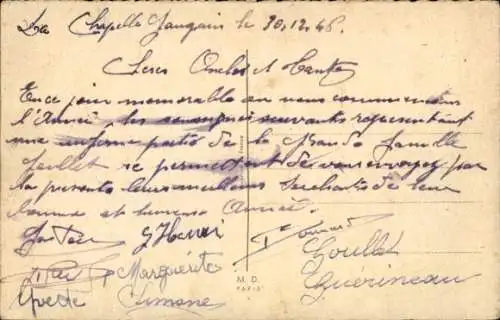 La Chapelle Gaugain le 30.12.46.
Chers Oncles et Tantes
En ce jour memorable ou nous commencons
l'Année les soussignés suivants representant
une infime partie de la Grande famille
Goullet se permettent de vous envoyer par
la presente leurs meilleurs Souhaits de
bonne et heureuse Année.
Gaston G Henri Bernard
Marguerite Goullet
Yvette Simone Guérineau
M. D.
PARIS